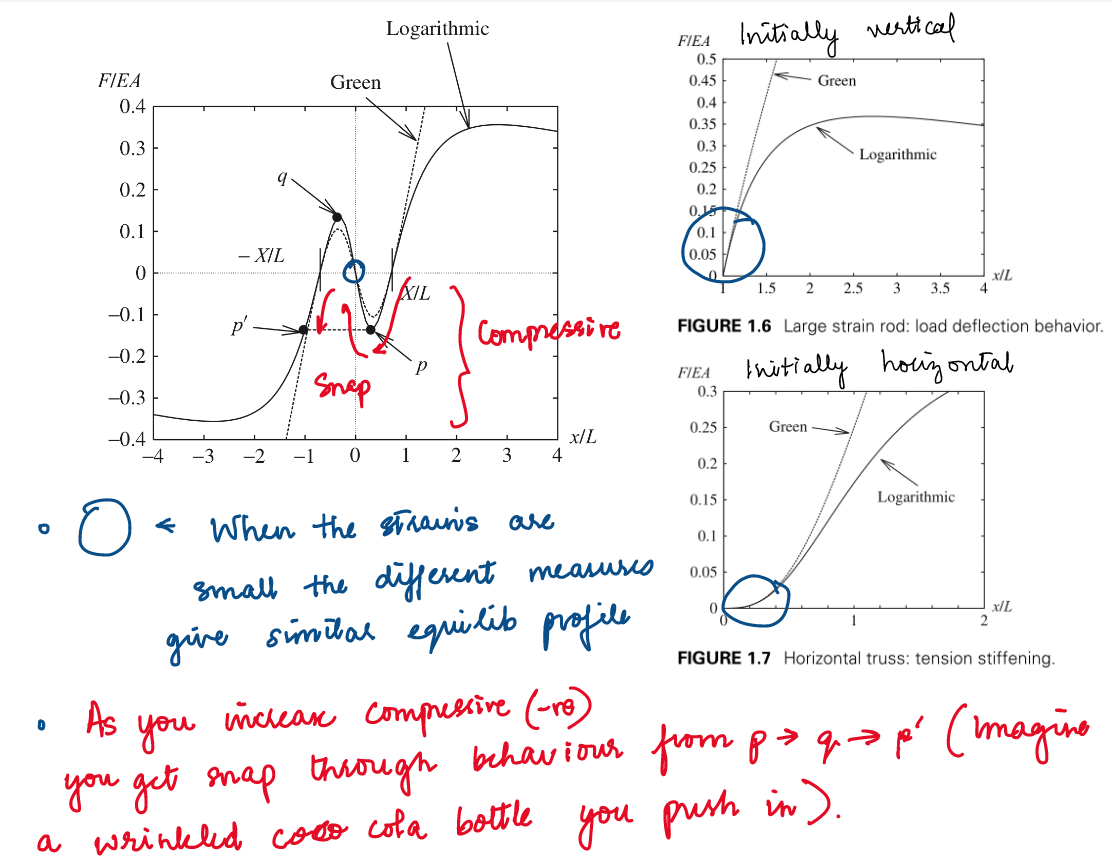 Logarithmic
Green
F/EA
0.4
0.3
0.2
0.1
0
−0.1
−0.2
−0.3
−0.4
q
− X/L
X/L
p′
p
Snap
Compressive
x/L
−4 −3 −2 −1 0 1 2 3 4
Initially vertical
F/EA
0.5
0.45
0.4
0.35
0.3
0.25
0.2
0.15
0.1
0.05
0
Green
Logarithmic
x/L
1 1.5 2 2.5 3 3.5 4
FIGURE 1.6 Large strain rod: load deflection behavior.
Initially horizontal
F/EA
0.3
0.25
0.2
0.15
0.1
0.05
0
Green
Logarithmic
x/L
0 1 2
FIGURE 1.7 Horizontal truss: tension stiffening.
← When the strains are
small the different measures
give similar equilib profile
As you increase compressive (-ve)
you get snap through behaviour from p → q → p′ (imagine
a wrinkled cola bottle you push in).